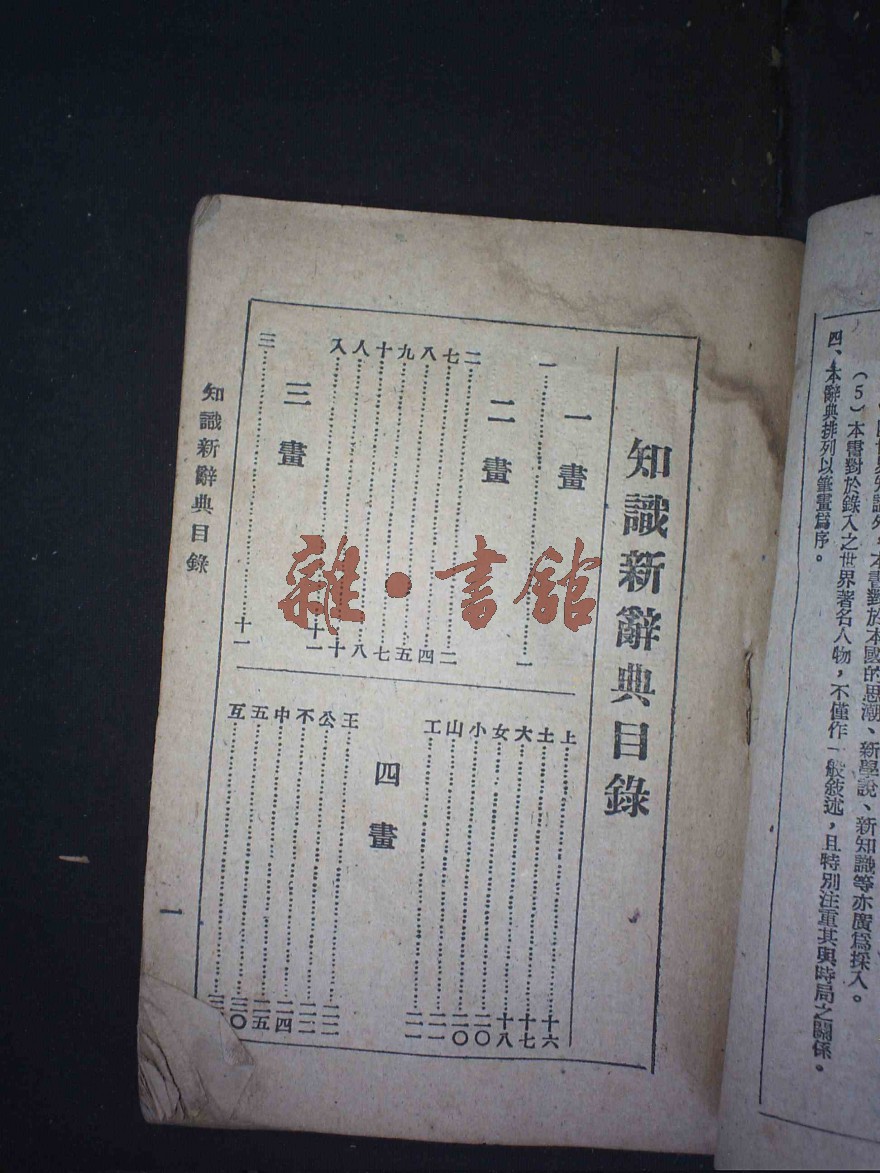 世界知識外，本書對於本國的思潮、新學說、新知識等亦廣爲採入。
（5）本書對於錄入之世界著名人物，不僅作一般敍述，且特別注重其與時局之關係。
四、本辭典排列以筆畫爲序。
知識新辭典目錄
一畫
一……一
二畫
二……二
七……四
八……五
九……七
十……八
人……十
入……十一
三畫
三……十一
上……十六
土……十七
大……十八
女……二〇
小……二〇
山……二一
工……二一
四畫
王……二二
公……二二
不……二四
中……二五
五……三〇
互……三
知識新辭典目錄
一
雜·書館